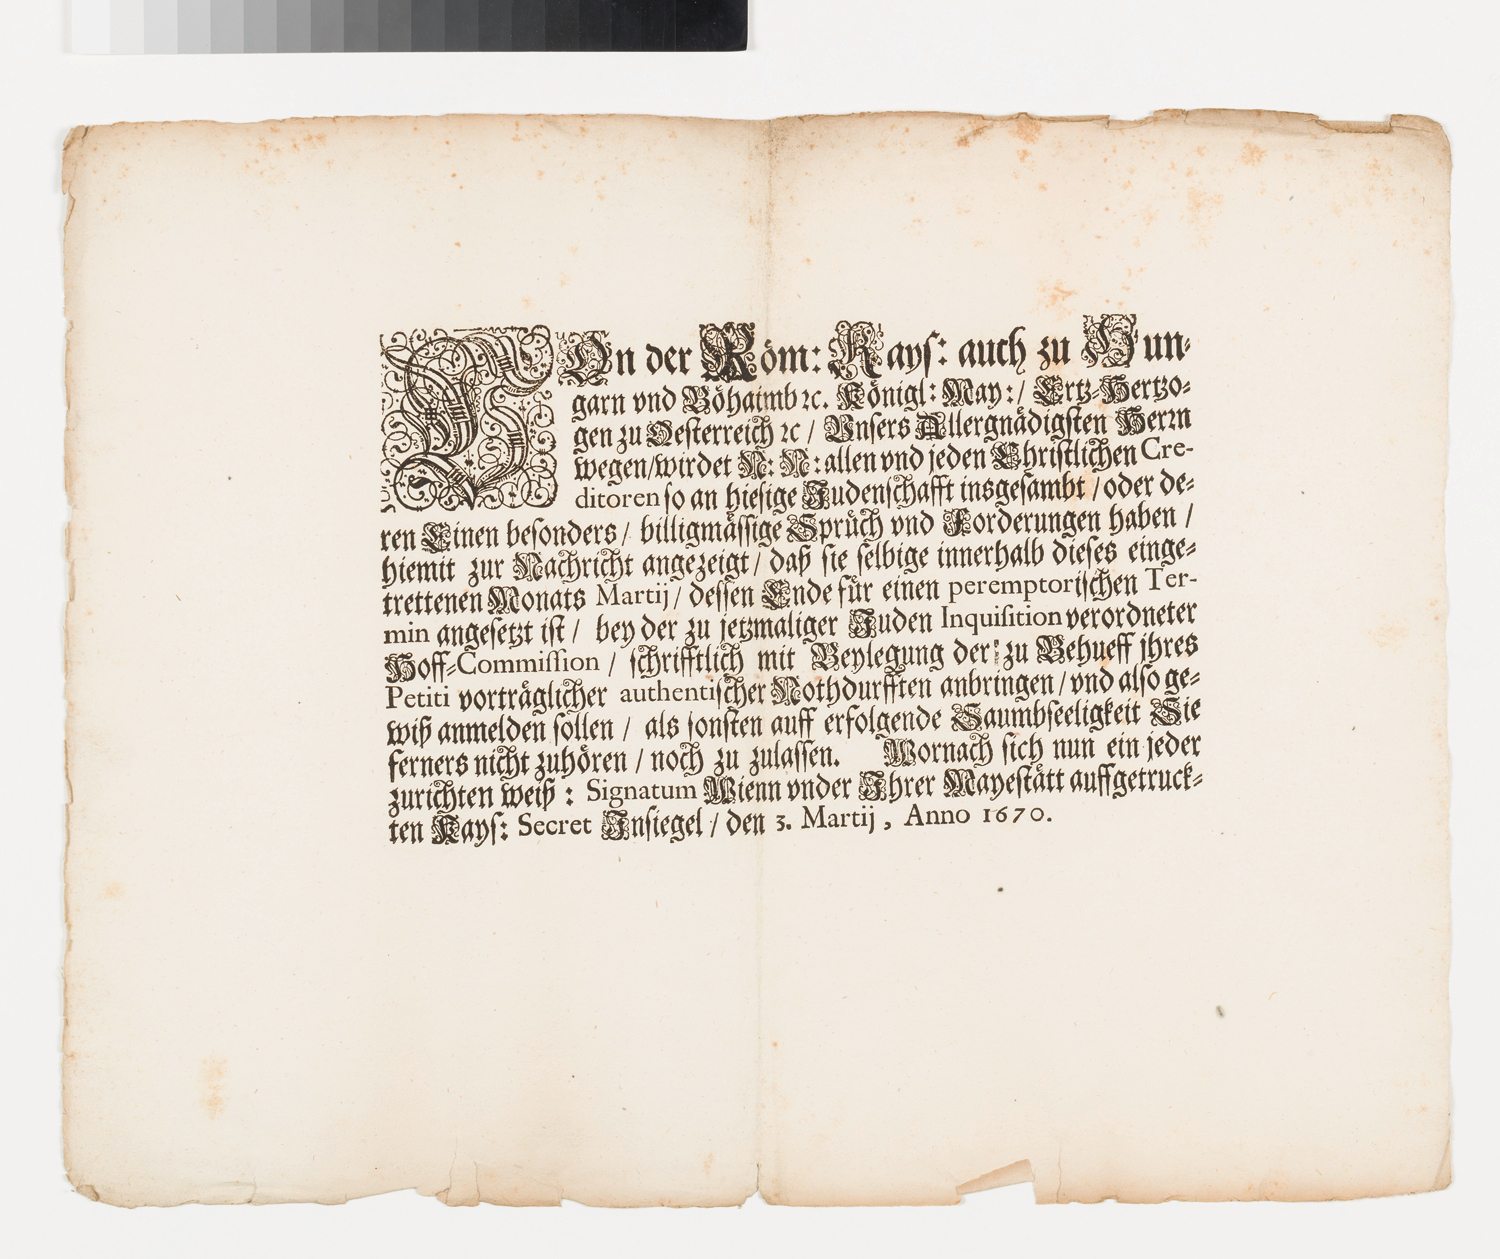 VOn der Röm: Kays: auch zu Hun-
garn vnd Böhaimb ꝛc. Königl: May:/ Ertz-Hertzo-
gen zu Oesterreich ꝛc / Vnsers Allergnädigsten Herrn
wegen/wirdet N: N: allen vnd jeden Christlichen Cre-
ditoren so an hiesige Judenschafft insgesambt / oder de-
ren Einen besonders / billigmässige Sprüch vnd Forderungen haben /
hiemit zur Nachricht angezeigt / daß sie selbige innerhalb dieses einge-
trettenen Monats Martij / dessen Ende für einen peremptorischen Ter-
min angesetzt ist / bey der zu jetzmaliger Juden Inquisition verordneter
Hoff-Commission / schrifftlich mit Beylegung der zu Behueff jhres
Petiti vorträglicher authentischer Nothdurfften anbringen / vnd also ge-
wiß anmelden sollen / als sonsten auff erfolgende Saumbseeligkeit Sie
ferners nicht zuhören / noch zu zulassen. Wornach sich nun ein jeder
zurichten weiß : Signatum Wienn vnder Ihrer Mayestätt auffgetruck-
ten Kays: Secret Insiegel / den 3. Martij , Anno 1670.